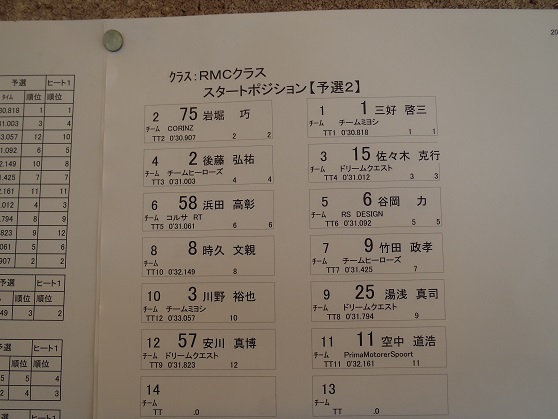 20
クラス：RMCクラス
スタートポジション【予選2】
予選 ヒート1
タイム 順位 順位
30.818 1 1
31.003 3 4
33.057 12 10
31.092 6 5
32.149 10 8
31.425 7 7
32.161 11 11
31.012 4 3
31.794 8 9
31.823 9 12
31.061 5 6
30.907 2 2
予選 ヒート1
順位 順位
49 3 2
予選 ヒート1
順位 順位
5 5 4
2 4 3
2 75 岩堀 巧
チーム CORINZ
TT2 0'30.907 2 2
1 1 三好 啓三
チーム チームミヨシ
TT1 0'30.818 1 1
4 2 後藤 弘祐
チーム チームヒーローズ
TT3 0'31.003 4 4
3 15 佐々木 克行
チーム ドリームクエスト
TT4 0'31.012 3 3
6 58 浜田 高彰
チーム コルサ RT
TT5 0'31.061 6 6
5 6 谷岡 力
チーム RS DESIGN
TT6 0'31.092 5 5
8 8 時久 文親
チーム
TT10 0'32.149 8
7 9 竹田 政孝
チーム チームヒーローズ
TT7 0'31.425 7
10 3 川野 裕也
チーム チームミヨシ
TT12 0'33.057 10
9 25 湯浅 真司
チーム ドリームクエスト
TT8 0'31.794 9
12 57 安川 真博
チーム ドリームクエスト
TT9 0'31.823 12
11 11 空中 道浩
チーム PrimaMotorerSpoort
TT11 0'32.161 11
14
チーム
TT .0
13
チーム
TT .0